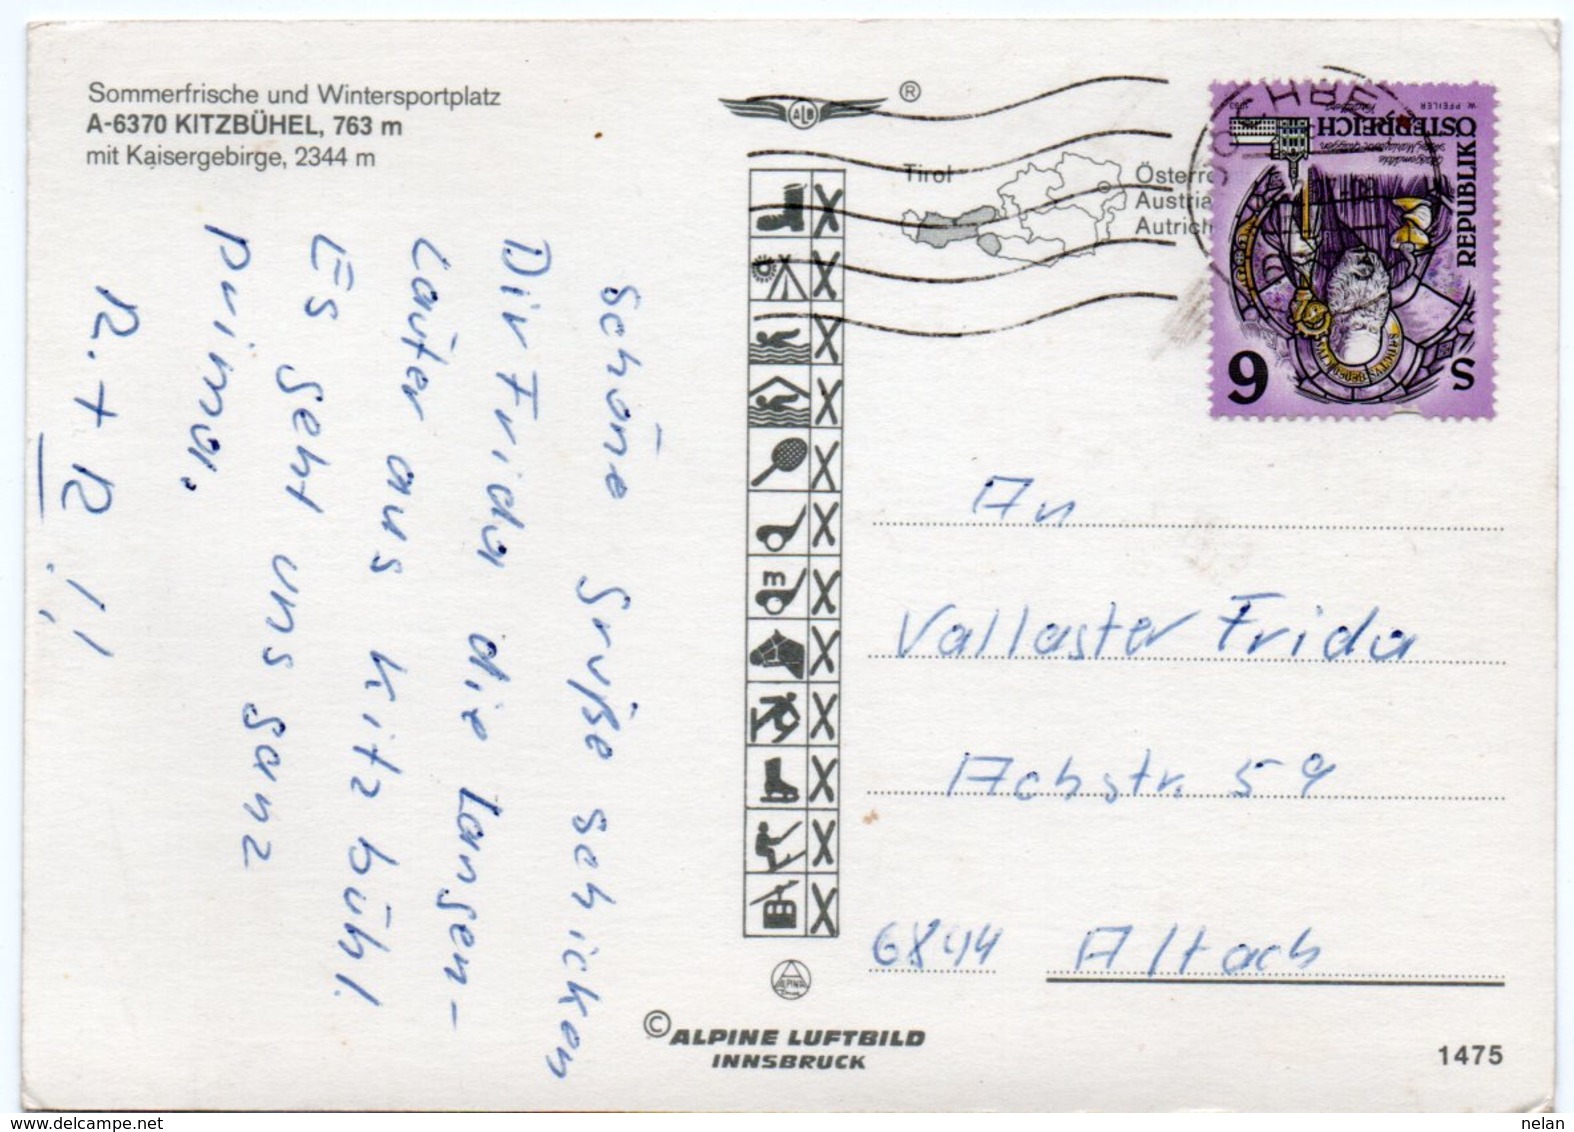 Sommerfrische und Wintersportplatz
A-6370 KITZBÜHEL, 763 m
mit Kaisergebirge, 2344 m
ALB ®
Tirol
Österre
Austria
Autrich
REPUBLIK
ÖSTERREICH
W. PFEILER
1993
S
6
Schöne Grüße schicken
Dir Frida die Langen-
Laufer aus Kitzbühl.
Es geht uns ganz
prima.
m
An
Vallaster Frida
Achstr. 59
6844 Altach
ALPINA
© ALPINE LUFTBILD
INNSBRUCK
1475
www.delcampe.net
nelan